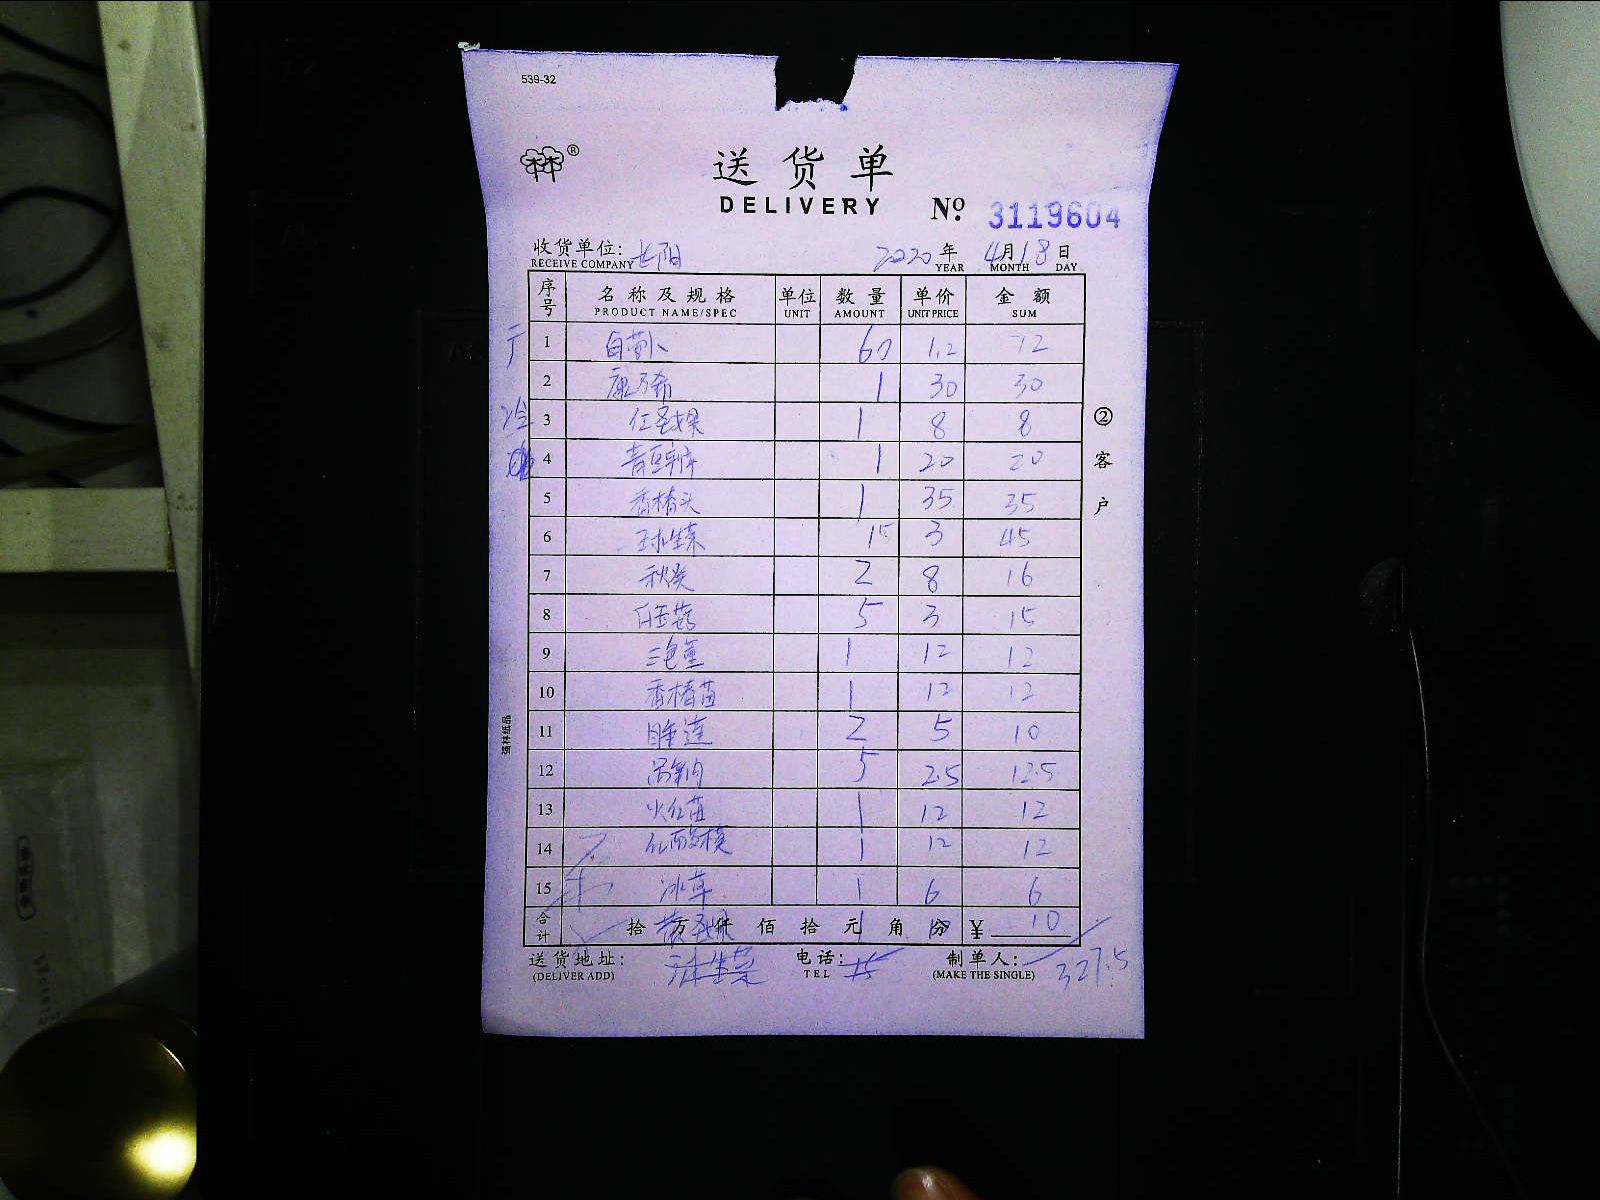 539-32
®
送货单
DELIVERY № 3119604
收货单位: 长阳 2020 年 4 月 18 日
RECEIVE COMPANY YEAR MONTH DAY
序号 名称及规格 单位 数量 单价 金额
PRODUCT NAME/SPEC UNIT AMOUNT UNIT PRICE SUM
1 白萝卜 60 1.2 72
2 康乃馨 1 30 30
冷 3 1 8 8
4 1 20 20
5 香椿头 1 35 35
6 球生菜 15 3 45
7 秋葵 2 8 16
8 白玉菇 5 3 15
9 三色堇 1 12 12
10 香椿苗 1 12 12
11 睡莲 2 5 10
12 5 2.5 12.5
13 火红苗 1 12 12
14 红酸模 1 12 12
15 冰草 1 6 6
合计 拾 万 仟 佰 拾 元 角 分 ¥ 10
送货地址: 球生菜 电话: 15 制单人: 327.5
(DELIVER ADD) TEL (MAKE THE SINGLE)
②客户
强林纸品